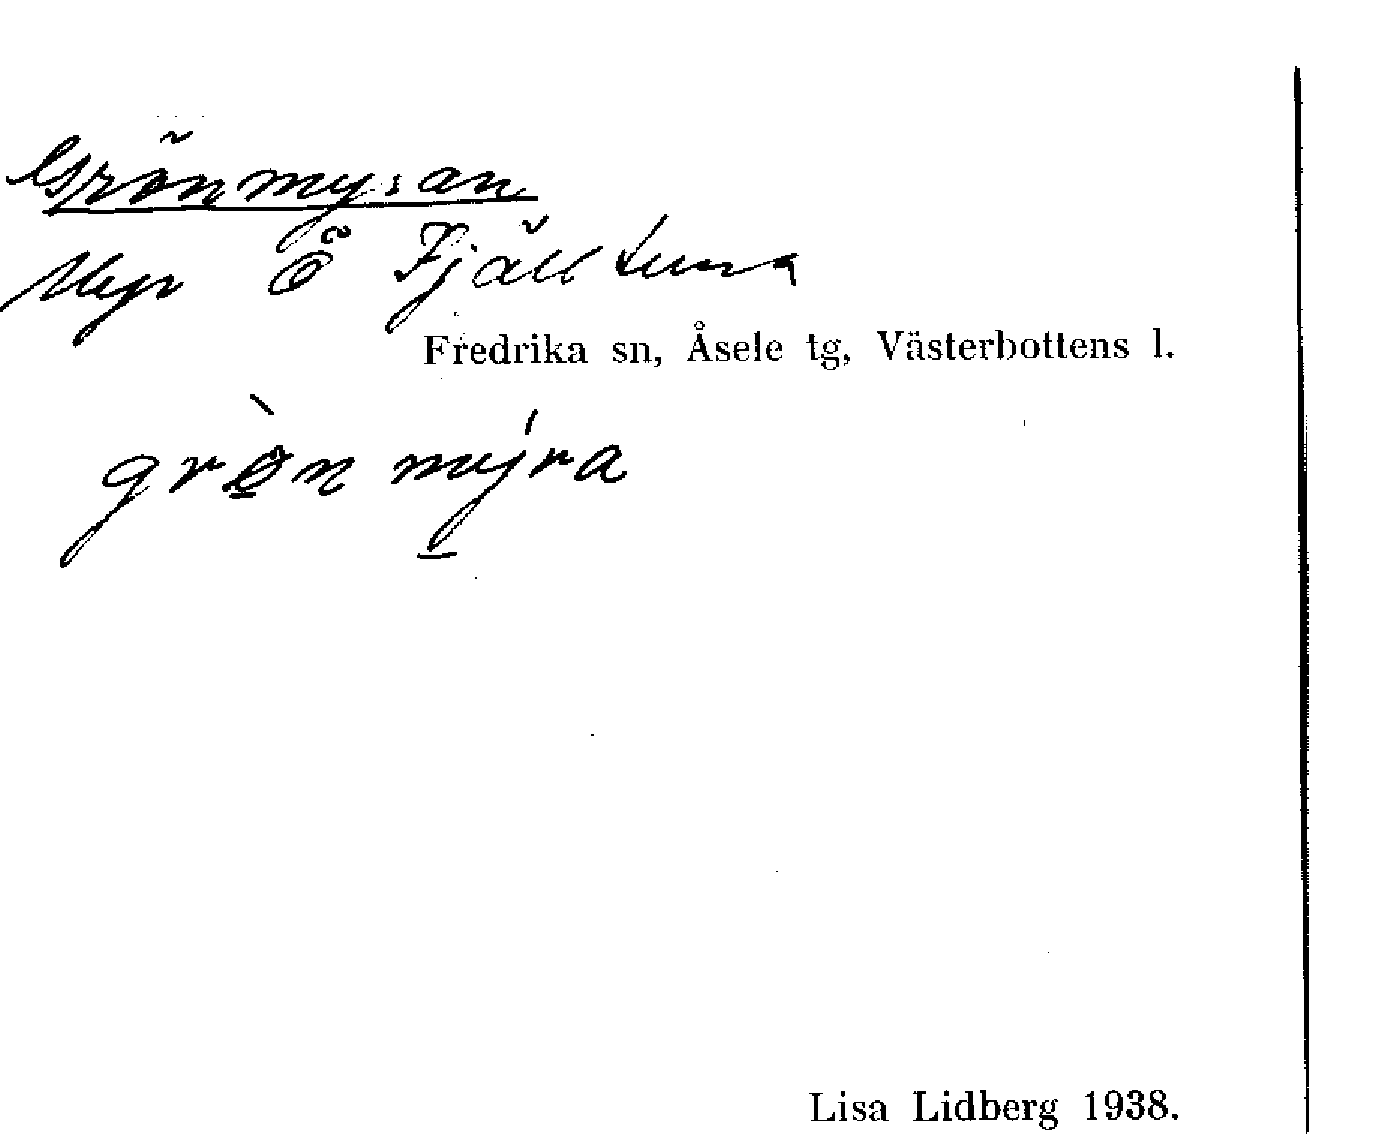 Grönmyran
Myr Ö Fjälltuna
Fredrika sn, Åsele tg, Västerbottens l.
grò̱n mý̱ra
Lisa Lidberg 1938.